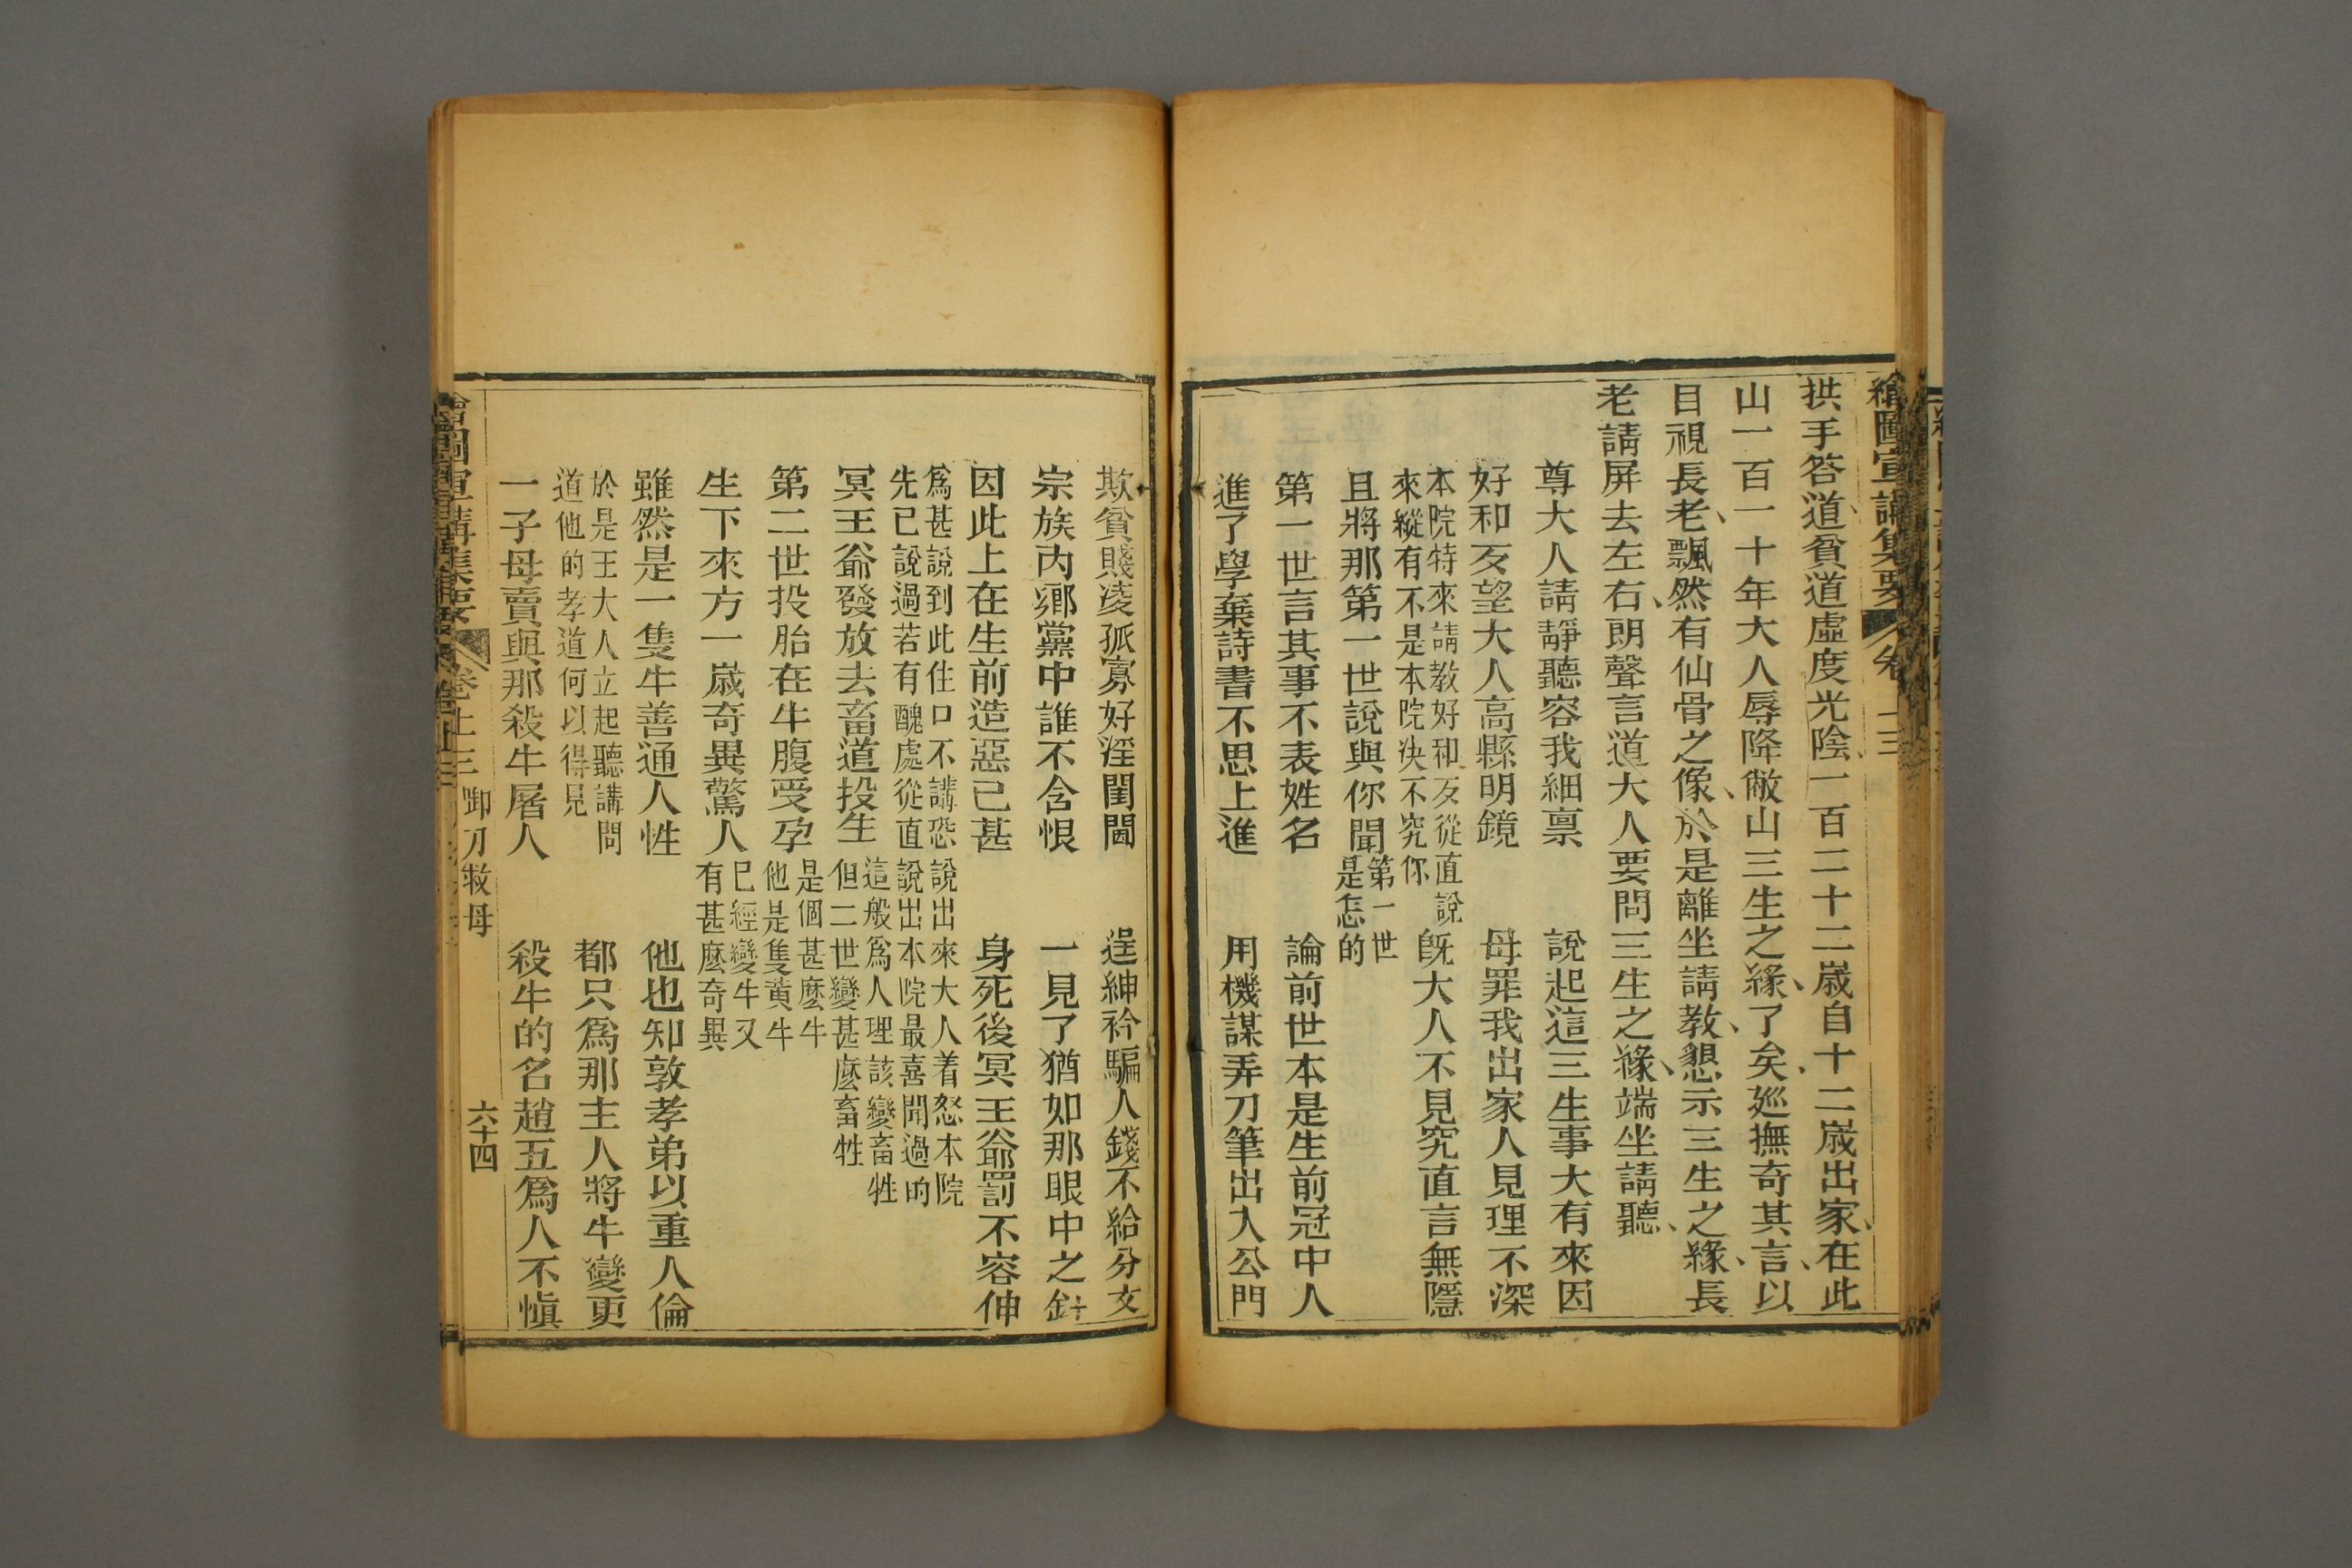 繪圖宣講集要 卷 三
拱手答道貧道虛度光陰一百二十二嵗自十二嵗出家在此
山一百一十年大人辱降敝山三生之緣了矣廵撫奇其言以
目視長老飄然有仙骨之像於是離坐請教懇示三生之緣長
老請屏去左右朗聲言道大人要問三生之緣端坐請聽
尊大人請靜聽容我細禀 說起這三生事大有來因
好和歹望大人高縣明鏡 毋罪我出家人見理不深
本院特來請教好和歹從直說
來縱有不是本院决不究你 旣大人不見究直言無隱
且將那第一世說與你聞
第一世
是怎的
第一世言其事不表姓名 論前世本是生前冠中人
進了學棄詩書不思上進 用機謀弄刀筆出入公門
欺貧賤凌孤寡好淫閨閫 逞紳衿騙人錢不給分文
宗族内鄉黨中誰不含恨 一見了猶如那眼中之針
因此上在生前造惡已甚 身死後冥王爺罰不容伸
爲甚說到此住口不講恐說出來大人着怒本院
先已說過若有醜處從直說出本院最喜聞過的
冥王爺發放去畜道投生
這般爲人理該變畜牲
但二世變甚麽畜牲
第二世投胎在牛腹受孕
是個甚麽牛
他是隻黄牛
生下來方一嵗奇異驚人
已經變牛又
有甚麽奇異
雖然是一隻牛善通人性 他也知敦孝弟以重人倫
於是王大人立起聽講問
道他的孝道何以得見 都只爲那主人將牛變更
一子母賣與那殺牛屠人 殺牛的名趙五爲人不愼
卷 三 啣刀救母 六十四